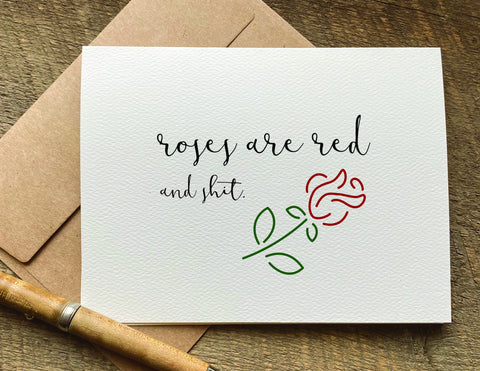 roses are red
and shit.